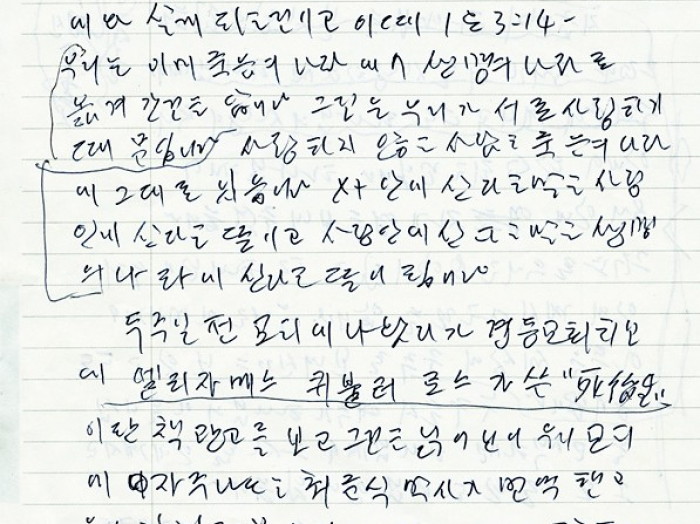 에 와 살게 되는 것이고 이때 1요 3:14-
우리는 이미 죽음의 나라에서 생명의 나라로
옮겨 간것을 압니다 그것은 우리가 서로 사랑하기
때문입니다 사랑하지 않는 사람은 죽음의 나라
에 그대로 있읍니다 X+ 안에 산다는 말은 사랑
안에 산다는 뜻이고 사랑안에 산다는 말은 생명
의 나라에 산다는 뜻이 됩니다
두주일 전 모티에 나
에 엘리자베스 퀴블러 로스가 쓴 "死後生"
이란 책 광고를 보고 그것을 읽어 보아 우리 모티
에 자주나오는 최준식 박사가 번역 했고